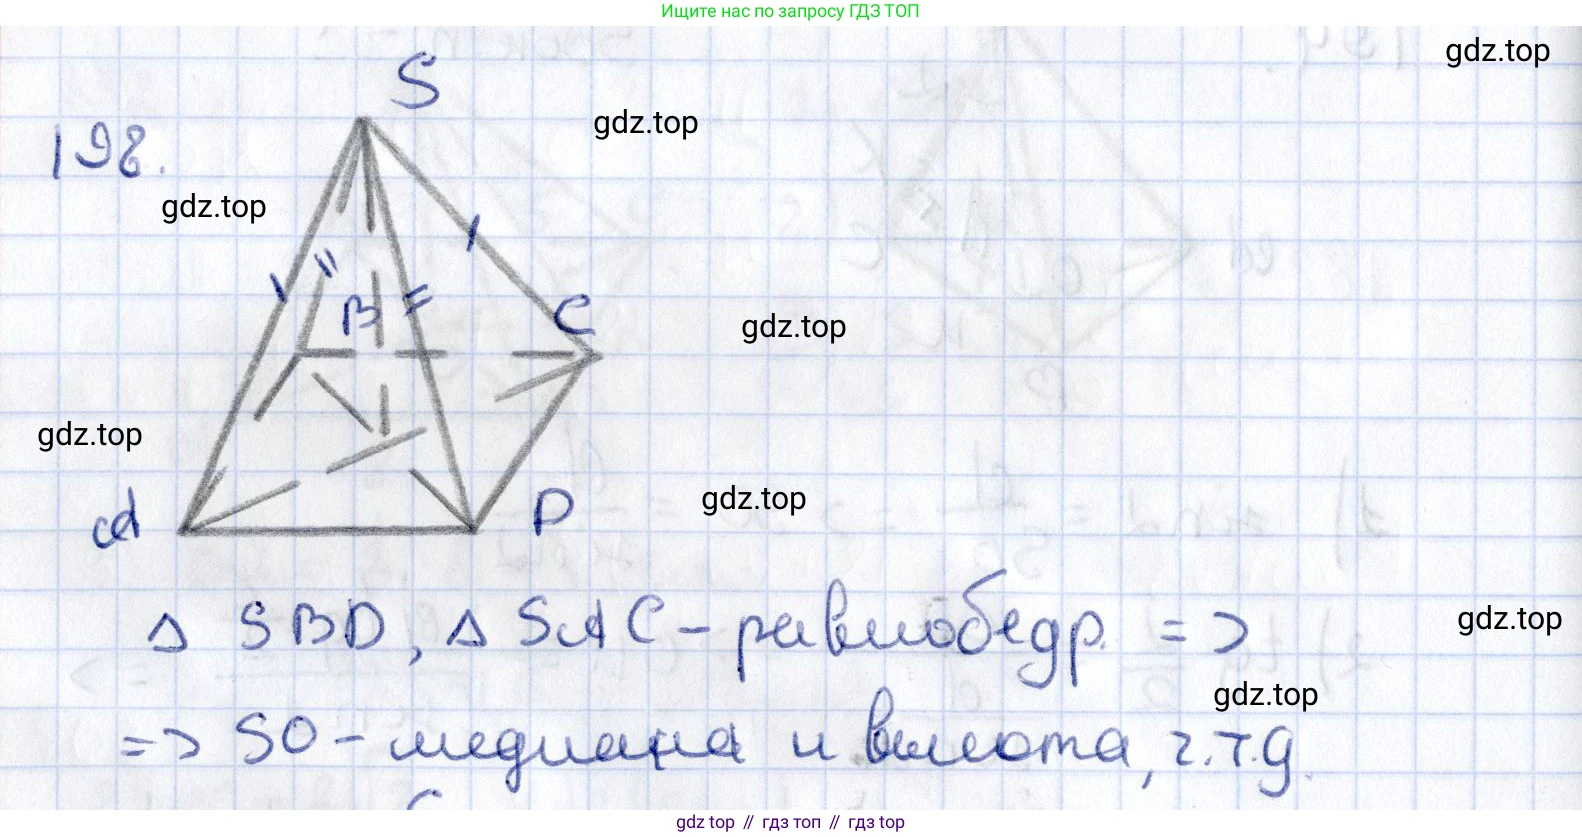 Ищите нас по запросу ГДЗ ТОП
gdz.top
S
gdz.top
198.
gdz.top
B
C
gdz.top
gdz.top
gdz.top
A
D
△ SBD, △ SAC - равнобедр. =>
gdz.top
gdz.top
=> SO - медиана и высота, ч.т.д.
gdz top // гдз топ // gdz top